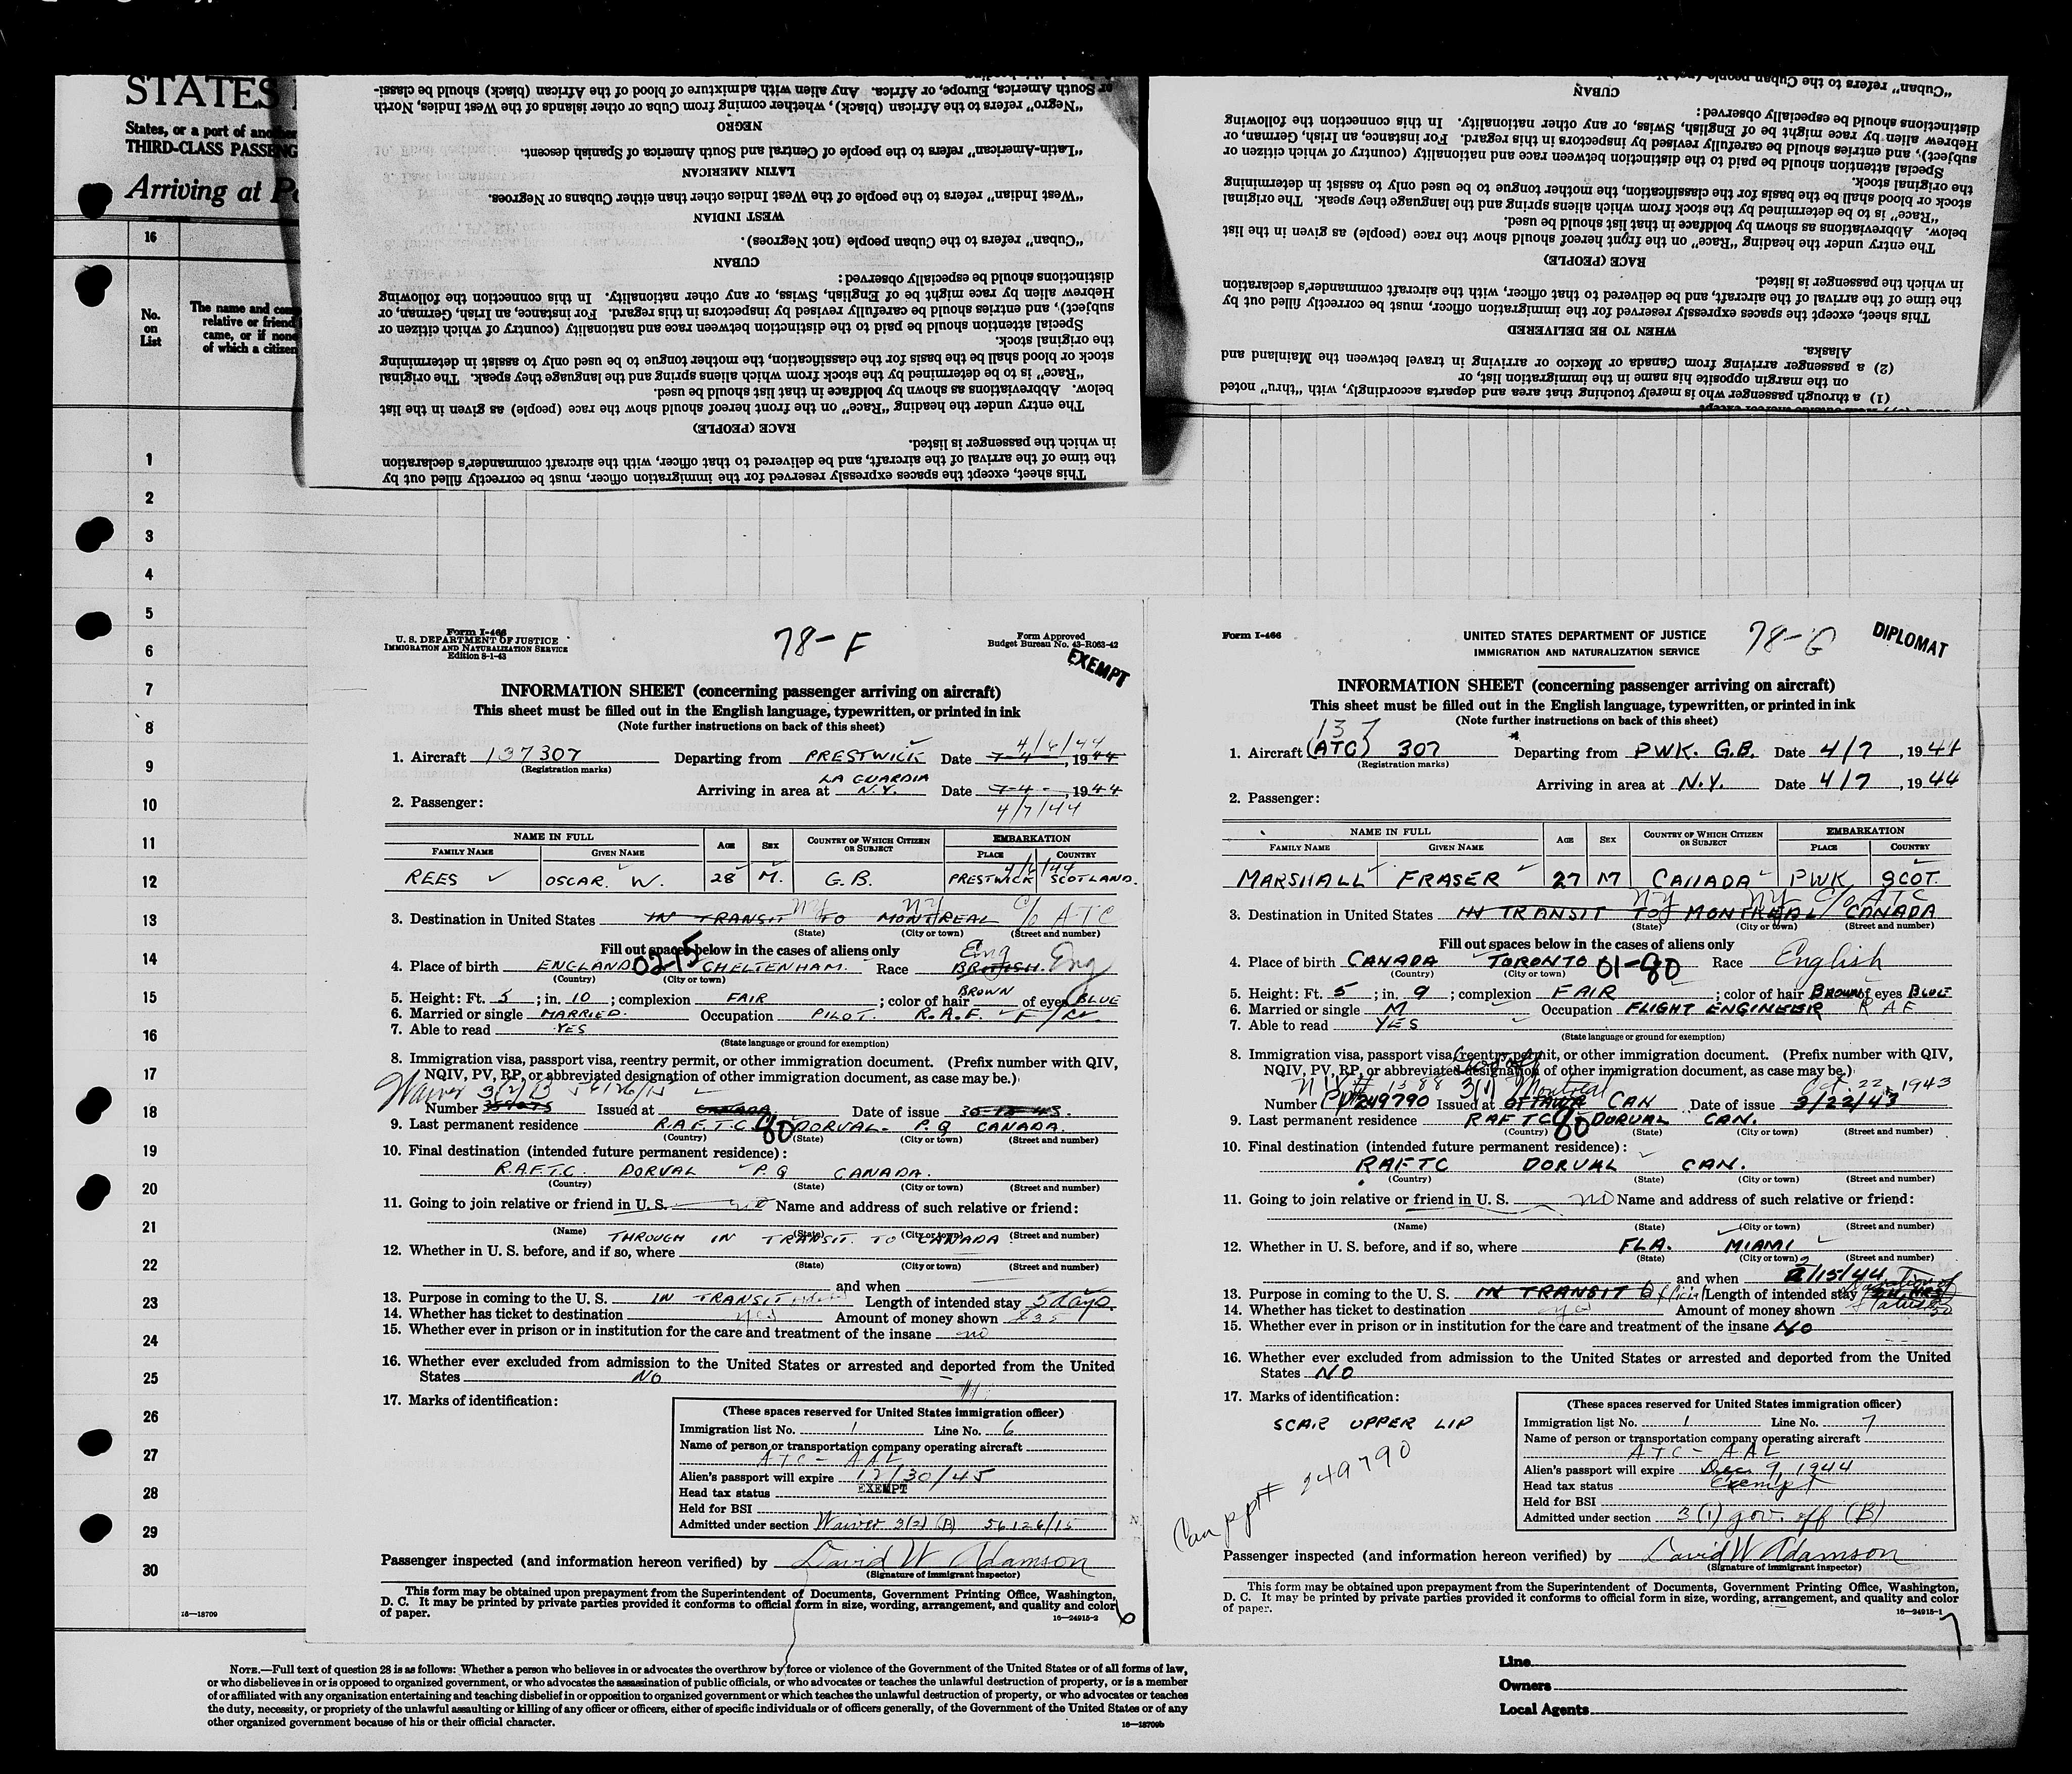 STATES
States, or a port of another
THIRD-CLASS PASSENG
Arriving at P
16
No.
on
List
The name and com
relative or friend
came, or if none
of which a citizen
1
2
3
4
5
6
7
8
9
10
11
12
13
14
15
16
17
18
19
20
21
22
23
24
25
26
27
28
29
30
16—18709
This sheet, except the spaces expressly reserved for the immigration officer, must be correctly filled out by
the time of the arrival of the aircraft, and be delivered to that officer, with the aircraft commander's declaration
in which the passenger is listed.
RACE (PEOPLE)
The entry under the heading "Race" on the front hereof should show the race (people) as given in the list
below. Abbreviations as shown by boldface in that list should be used.
"Race" is to be determined by the stock from which aliens spring and the language they speak. The original
stock or blood shall be the basis for the classification, the mother tongue to be used only to assist in determining
the original stock.
Special attention should be paid to the distinction between race and nationality (country of which citizen or
subject), and entries should be carefully revised by inspectors in this regard. For instance, an Irish, German, or
Hebrew alien by race might be of English, Swiss, or any other nationality. In this connection the following
distinctions should be especially observed:
CUBAN
"Cuban" refers to the Cuban people (not Negroes).
WEST INDIAN
"West Indian" refers to the people of the West Indies other than either Cubans or Negroes.
LATIN AMERICAN
"Latin-American" refers to the people of Central and South America of Spanish descent.
NEGRO
"Negro" refers to the African (black), whether coming from Cuba or other islands of the West Indies, North
or South America, Europe, or Africa. Any alien with admixture of blood of the African (black) should be classi-
(1) a through passenger who is merely touching that area and departs accordingly, with "thru" noted
on the margin opposite his name in the immigration list, or
(2) a passenger arriving from Canada or Mexico or arriving in travel between the Mainland and
Alaska.
WHEN TO BE DELIVERED
This sheet, except the spaces expressly reserved for the immigration officer, must be correctly filled out by
the time of the arrival of the aircraft, and be delivered to that officer, with the aircraft commander's declaration
in which the passenger is listed.
RACE (PEOPLE)
The entry under the heading "Race" on the front hereof should show the race (people) as given in the list
below. Abbreviations as shown by boldface in that list should be used.
"Race" is to be determined by the stock from which aliens spring and the language they speak. The original
stock or blood shall be the basis for the classification, the mother tongue to be used only to assist in determining
the original stock.
Special attention should be paid to the distinction between race and nationality (country of which citizen or
subject), and entries should be carefully revised by inspectors in this regard. For instance, an Irish, German, or
Hebrew alien by race might be of English, Swiss, or any other nationality. In this connection the following
distinctions should be especially observed:
CUBAN
"Cuban" refers to the Cuban people
Form I-466
U. S. DEPARTMENT OF JUSTICE
IMMIGRATION AND NATURALIZATION SERVICE
Edition 8-1-43
78-F
Form Approved
Budget Bureau No. 43-R063-42
EXEMPT
INFORMATION SHEET (concerning passenger arriving on aircraft)
This sheet must be filled out in the English language, typewritten, or printed in ink
(Note further instructions on back of this sheet)
4/6/44
1. Aircraft 137307 Departing from PRESTWICK Date 7-4-, 1944
(Registration marks)
LA GUARDIA
Arriving in area at N.Y. Date 7-4-, 1944
4/7/44
2. Passenger:
NAME IN FULL AGE SEX COUNTRY OF WHICH CITIZEN OR SUBJECT EMBARKATION
FAMILY NAME GIVEN NAME PLACE COUNTRY
4/6/44
REES OSCAR. W. 28 M. G.B. PRESTWICK SCOTLAND.
NY NY C/o ATC
3. Destination in United States IN TRANSIT TO MONTREAL
(State) (City or town) (Street and number)
Fill out spaces below in the cases of aliens only
Eng
4. Place of birth ENGLAND 0215 CHELTENHAM. Race BRITISH. Eng
(Country) (City or town)
BROWN
5. Height: Ft. 5; in. 10; complexion FAIR; color of hair of eyes BLUE
6. Married or single MARRIED. Occupation PILOT. R.A.F.
7. Able to read YES
(State language or ground for exemption)
8. Immigration visa, passport visa, reentry permit, or other immigration document. (Prefix number with QIV,
NQIV, PV, RP, or abbreviated designation of other immigration document, as case may be.)
Waiver 3(2)B 56126/15
Number Issued at CANADA Date of issue
9. Last permanent residence R.A.F.T.C. 80 DORVAL- P.Q CANADA.
(Country) (State) (City or town) (Street and number)
10. Final destination (intended future permanent residence):
R.A.F.T.C. DORVAL P.Q CANADA.
(Country) (State) (City or town) (Street and number)
11. Going to join relative or friend in U. S. no Name and address of such relative or friend:
(Name) (State) (City or town) (Street and number)
THROUGH IN TRANSIT. TO CANADA
12. Whether in U. S. before, and if so, where
(State) (City or town) (Street and number)
and when
13. Purpose in coming to the U. S. IN TRANSIT Length of intended stay 5 days
14. Whether has ticket to destination yes Amount of money shown £35
15. Whether ever in prison or in institution for the care and treatment of the insane no
16. Whether ever excluded from admission to the United States or arrested and deported from the United
States NO
17. Marks of identification:
(These spaces reserved for United States immigration officer)
Immigration list No. 1 Line No. 6
Name of person or transportation company operating aircraft
ATC - AAL
Alien's passport will expire 12/30/45
Head tax status EXEMPT
Held for BSI
Admitted under section Waiver 3(2)(B) 56126/15
Passenger inspected (and information hereon verified) by David W Adamson
(Signature of immigrant inspector)
This form may be obtained upon prepayment from the Superintendent of Documents, Government Printing Office, Washington,
D. C. It may be printed by private parties provided it conforms to official form in size, wording, arrangement, and quality and color
of paper.
16—24915-2
6
Form I-466
UNITED STATES DEPARTMENT OF JUSTICE
IMMIGRATION AND NATURALIZATION SERVICE
78-G
DIPLOMAT
INFORMATION SHEET (concerning passenger arriving on aircraft)
This sheet must be filled out in the English language, typewritten, or printed in ink
(Note further instructions on back of this sheet)
137
1. Aircraft (ATC) 307 Departing from PWK. G.B. Date 4/7, 1944
(Registration marks)
Arriving in area at N.Y. Date 4/7, 1944
2. Passenger:
NAME IN FULL AGE SEX COUNTRY OF WHICH CITIZEN OR SUBJECT EMBARKATION
FAMILY NAME GIVEN NAME PLACE COUNTRY
MARSHALL FRASER 27 M CANADA PWK SCOT.
NY NY C/o ATC
3. Destination in United States IN TRANSIT TO MONTREAL CANADA
(State) (City or town) (Street and number)
Fill out spaces below in the cases of aliens only
4. Place of birth CANADA TORONTO 01-80 Race English
(Country) (City or town)
5. Height: Ft. 5; in. 9; complexion FAIR; color of hair BROWN of eyes BLUE
6. Married or single M Occupation FLIGHT ENGINEER RAF
7. Able to read YES
(State language or ground for exemption)
8. Immigration visa, passport visa, reentry permit, or other immigration document. (Prefix number with QIV,
NQIV, PV, RP, or abbreviated designation of other immigration document, as case may be.)
NIV # 1388 3(1) Montreal Oct. 22, 1943
Number 249790 Issued at OTTAWA CAN Date of issue 3/22/43
9. Last permanent residence RAFTC 80 DORVAL CAN.
(Country) (State) (City or town) (Street and number)
10. Final destination (intended future permanent residence):
RAFTC DORVAL CAN.
(Country) (State) (City or town) (Street and number)
11. Going to join relative or friend in U. S. no Name and address of such relative or friend:
(Name) (State) (City or town) (Street and number)
12. Whether in U. S. before, and if so, where FLA. MIAMI
(State) (City or town) (Street and number)
and when 2/15/44
13. Purpose in coming to the U. S. IN TRANSIT Official Length of intended stay Duration of Status
14. Whether has ticket to destination yes Amount of money shown
15. Whether ever in prison or in institution for the care and treatment of the insane NO
16. Whether ever excluded from admission to the United States or arrested and deported from the United
States NO
17. Marks of identification:
SCAR UPPER LIP
Can ppt# 249790
(These spaces reserved for United States immigration officer)
Immigration list No. 1 Line No. 7
Name of person or transportation company operating aircraft
ATC - AAL
Alien's passport will expire Dec. 9, 1944
Head tax status Exempt
Held for BSI
Admitted under section 3(1) gov. off (B)
Passenger inspected (and information hereon verified) by David W Adamson
(Signature of immigrant inspector)
This form may be obtained upon prepayment from the Superintendent of Documents, Government Printing Office, Washington,
D. C. It may be printed by private parties provided it conforms to official form in size, wording, arrangement, and quality and color
of paper.
16—24915-1
7
NOTE.—Full text of question 28 is as follows: Whether a person who believes in or advocates the overthrow by force or violence of the Government of the United States or of all forms of law,
or who disbelieves in or is opposed to organized government, or who advocates the assassination of public officials, or who advocates or teaches the unlawful destruction of property, or is a member
of or affiliated with any organization entertaining and teaching disbelief in or opposition to organized government or which teaches the unlawful destruction of property, or who advocates or teaches
the duty, necessity, or propriety of the unlawful assaulting or killing of any officer or officers, either of specific individuals or of officers generally, of the Government of the United States or of any
other organized government because of his or their official character.
16—18709b
Line
Owners
Local Agents